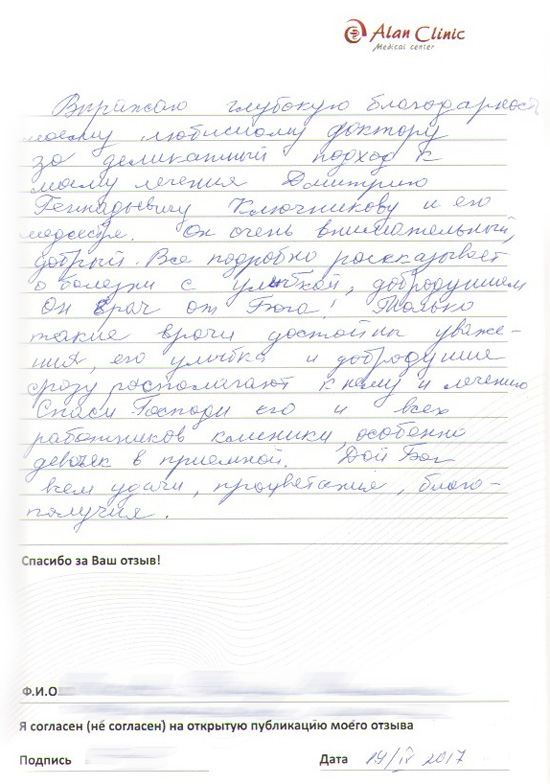 Alan Clinic
Medical center
Выражаю глубокую благодарность
моему любимому доктору
за деликатный подход к
моему лечения Дмитрию
Геннадьевичу Ключникову и его
медсестре. Он очень внимательный,
добрый. Все подробно рассказывает
о болезни с улыбкой, добродушием
Он врач от Бога! Только
такие врачи достойны уваже-
ния, его улыбка и добродушие
сразу располагают к нему и лечению
Спаси Господи его и всех
работников клиники, особенно
девочек в приемной. Дай Бог
всем удачи, процветания, благо-
получия.
Спасибо за Ваш отзыв!
Ф.И.О
Я согласен (не согласен) на открытую публикацию моего отзыва
Подпись Дата 19/IV 2017